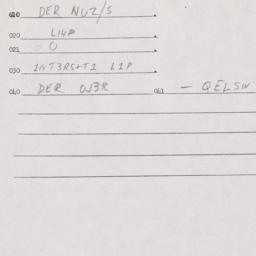 010 DER NU2/S
020 L14P
021 O
030 1NT3RS+T1 L1P
040 DER OJ3R 041 — QELSW